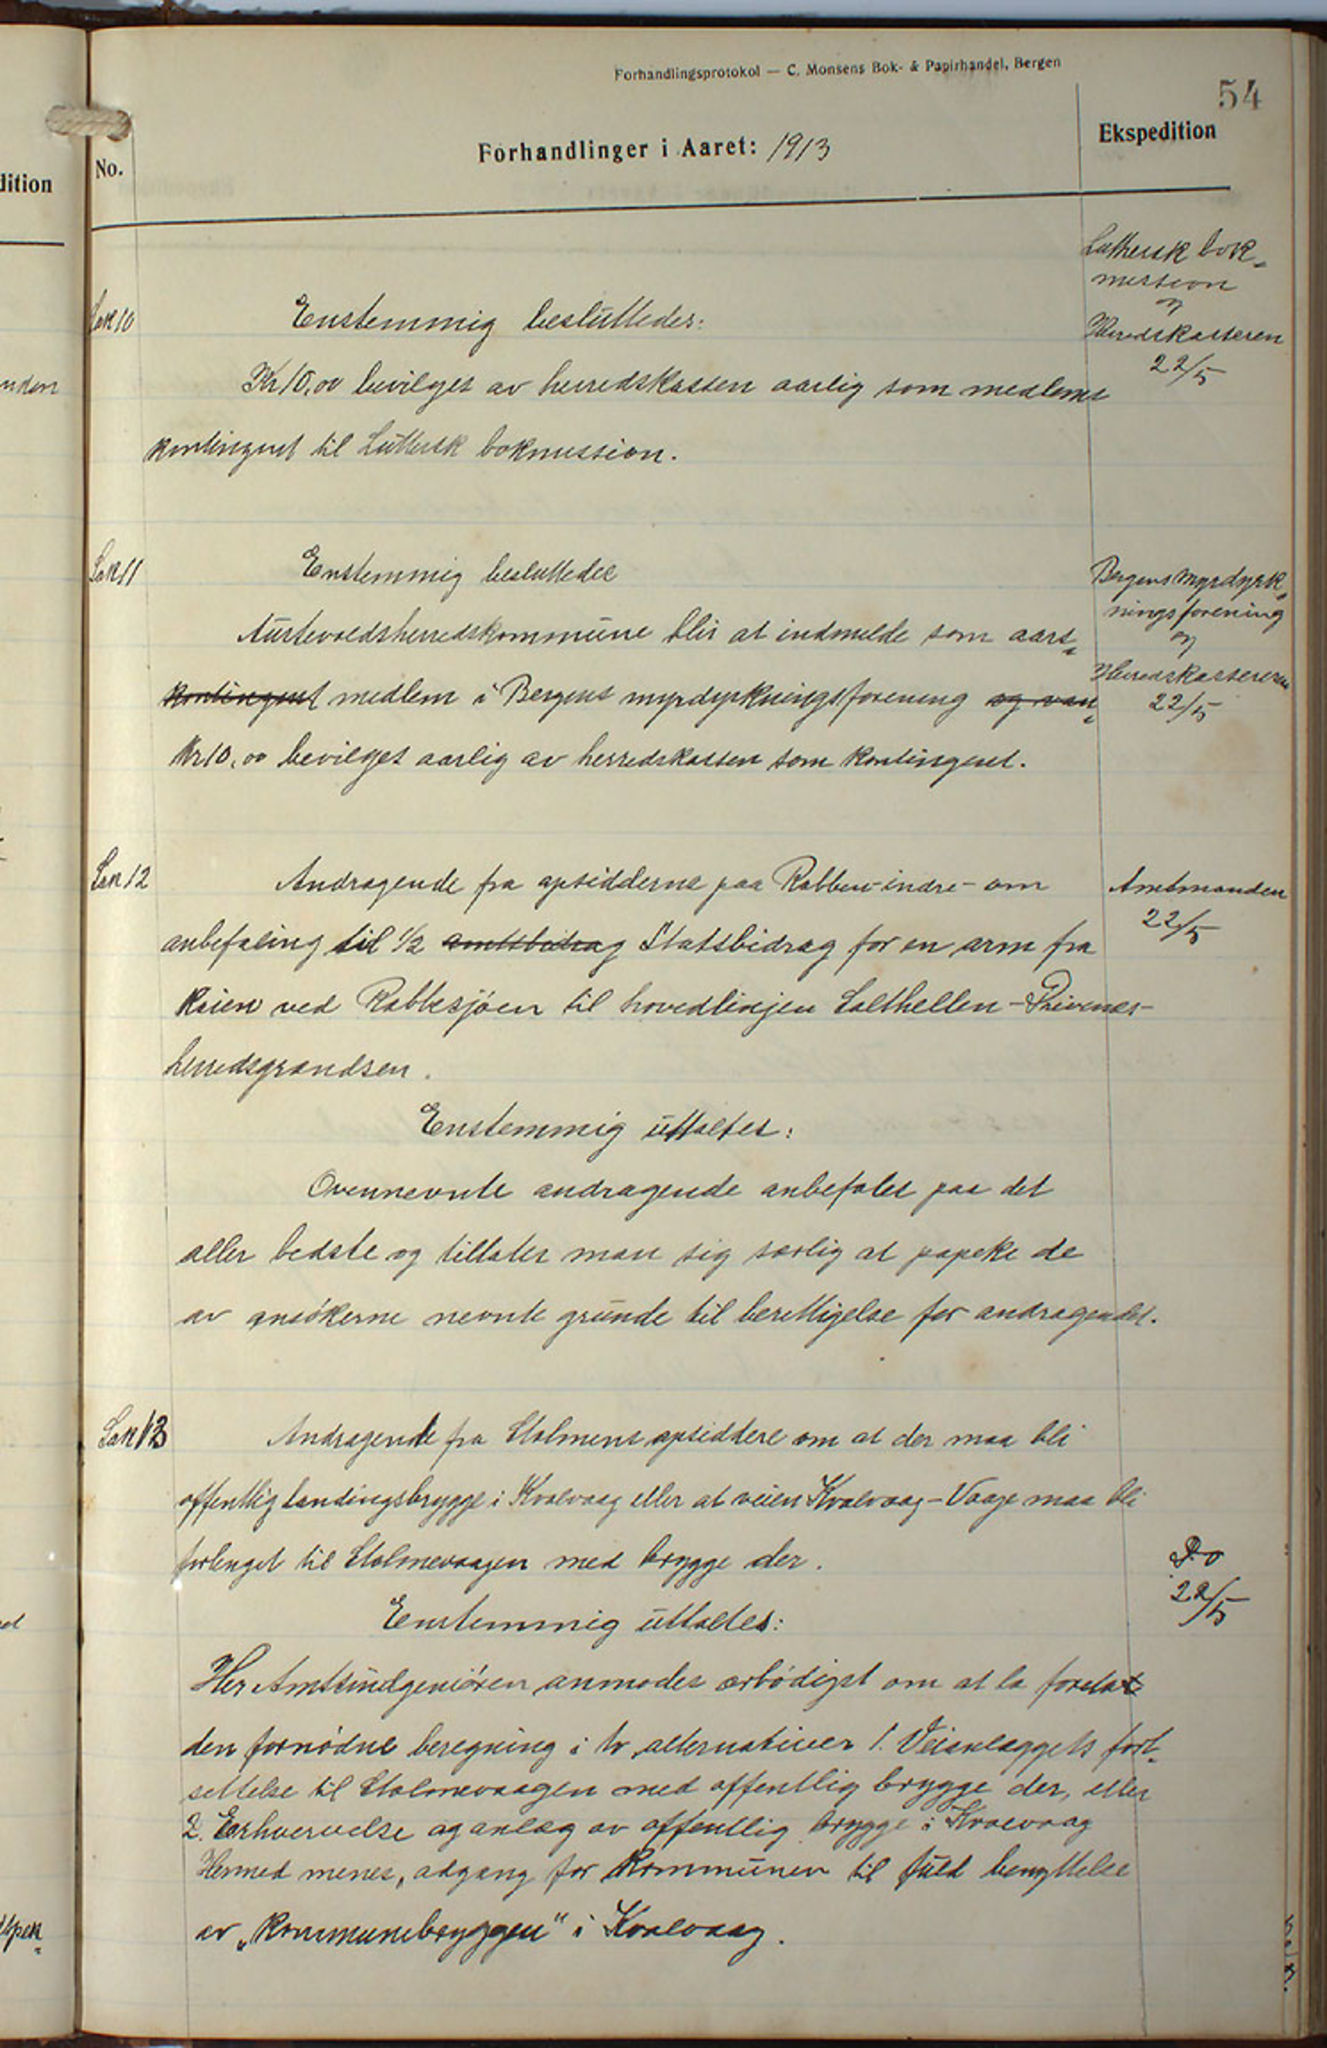 Forhandlingsprotokol — C. Monsens Bok- & Papirhandel, Bergen
54
dition
No.
Forhandlinger i Aaret: 1913
Ekspedition
Luthersk bok-
mission
og
Herredskasseren
22/5
Sak 10
Enstemmig besluttedes:
Kr 10,00 bevilges av herredskassen aarlig som medlems
kontingent til Luthersk bokmission.
Sak 11
Enstemmig besluttedes
Bergens Myrdyrk-
ningsforening
og
Herredskasseren
22/5
Austevoldsherredskommune blir at indmelde som aars-
kontingent medlem i Bergens myrdyrkningsforening og van-
Kr 10,00 bevilges aarlig av herredskassen som kontingent.
Sak 12
Andragende fra opsidderne paa Rabben-indre- om
Amtmanden
22/5
anbefaling til 1/2 amtsbidrag Statsbidrag for en arm fra
Kaien ved Rabbesjøen til hovedlinjen Salthellen -
herredsgrændsen.
Enstemmig uttaltes:
Ovennevnte andragende anbefales paa det
aller bedste og tillates man sig særlig at papeke de
av ansökerne nevnte grunde til berettigelse for andragendet.
Sak 13
Andragende fra Stolmens opsiddere om at der maa bli
offentlig landingsbrygge i Kvalvaag eller at veien Kvalvaag - Vaage maa bli
forlenget til Stolmevaagen med brygge der.
Do
22/5
Enstemmig uttaltes:
Her Amtsindgeniören anmodes ærbödigst om at la foreta
den fornödne beregning i to alternativer 1. Veianlæggets fort-
settelse til Stolmevaagen med offentlig brygge der, eller
2. Erhvervelse og anlæg av offentlig brygge i Kvalvaag
Hermed menes, adgang for Kommunen til fuld benyttelse
av „Kommunebryggen" i Kvalvaag.